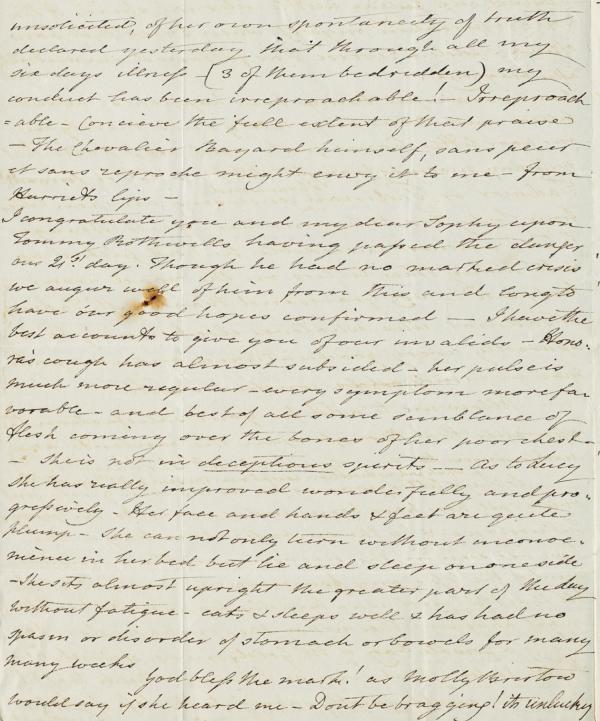 unsolicited, of her own spontaneity of truth
declared yesterday that through all my
six days illness (3 of them bedridden) my
conduct has been irreproachable! - Irreproach
=able - Concieve the full extent of that praise
- The Chevalier Bayard himself, sans peur
et sans reproche might envy it to me - from
Harriets lips -
I congratulate you and my dear Sophy upon
Tommy Rothwells having passed the danger
ous 21st day. Though he had no marked crisis
we augur well of him from this and long to
have our good hopes confirmed - I have the
best accounts to give you of our invalids - Hono-
ra's cough has almost subsided - her pulse is
much more regular - every symptom more fa-
vorable - and best of all some semblance of
flesh coming over the bones of her poor chest -
- She is not in deceptious spirits - As to Lucy
She has really improved wonderfully and pro-
gressively - Her face and hands & feet are quite
plump - She can not only turn without inconve-
nience in her bed but lie and sleep on one side
- She sits almost upright the greater part of the day
without fatigue - eats & sleeps well & has had no
spasm or disorder of stomach or bowels for many
many weeks
God bless the mark! as Molly Bristow
would say if she heard me - Dont be bragging! its unlucky